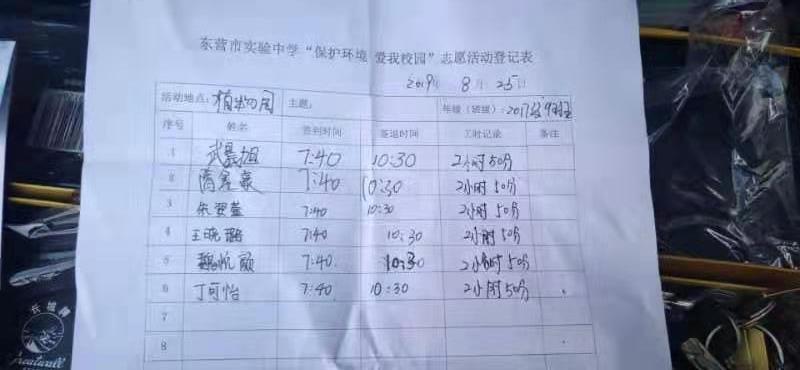 东营市实验中学“保护环境 爱我校园”志愿活动登记表
2019年 8月 25日
活动地点：植物园 主题： 年级（班级）：2017级9班
序号 姓名 签到时间 签退时间 工时记录 备注
1 武晨旭 7:40 10:30 2小时50分
2 7:40 10:30 2小时50分
3 7:40 10:30 2小时50分
4 王晓璐 7:40 10:30 2小时50分
5 魏悦颐 7:40 10:30 2小时50分
6 丁可怡 7:40 10:30 2小时50分
7
8
长城牌
Greatwall